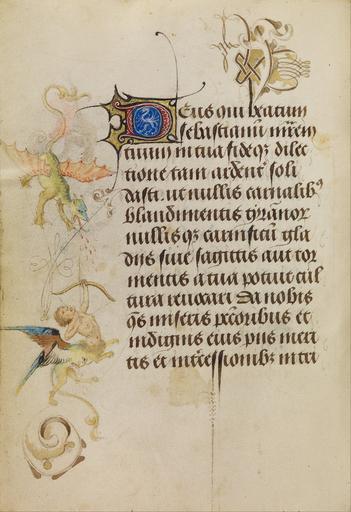 Deus qui beatum
sebastianū mr̄em
tuum in tua fide qȝ dilec
tione tam ardent̄ soli
dasti. ut nullis carnalibꝰ
blandimentis tyrānoꝝ
nullis qȝ carnificū gla
diis siue sagittis aut tor
mentis a tua potuit cul
tura reuocari Da nobis
q̄s miseris pc̄coribus et
indignis eius piis meri
tis et int̄cessionibȝ int̄